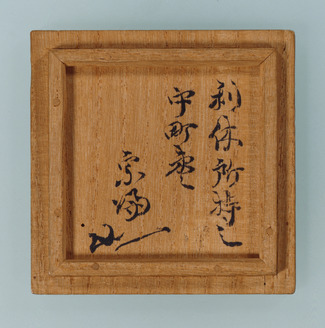 利休所持之
中町棗
宗陽